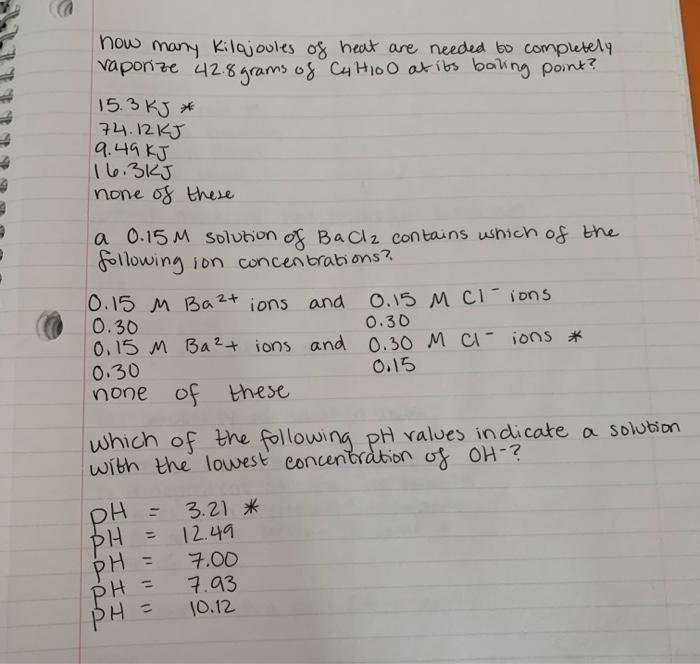 how many Kilojoules of heat are needed to completely
vaporize 42.8 grams of C4H10O at its boiling point?
15.3 KJ *
74.12KJ
9.49 KJ
16.3KJ
none of these
a 0.15M solution of BaCl2 contains which of the
following ion concentrations?
0.15 M Ba2+ ions and 0.15 M Cl- ions
0.30 0.30
0.15 M Ba2+ ions and 0.30 M Cl- ions *
0.30 0.15
none of these
which of the following pH values indicate a solution
with the lowest concentration of OH-?
pH = 3.21 *
pH = 12.49
pH = 7.00
pH = 7.93
pH = 10.12